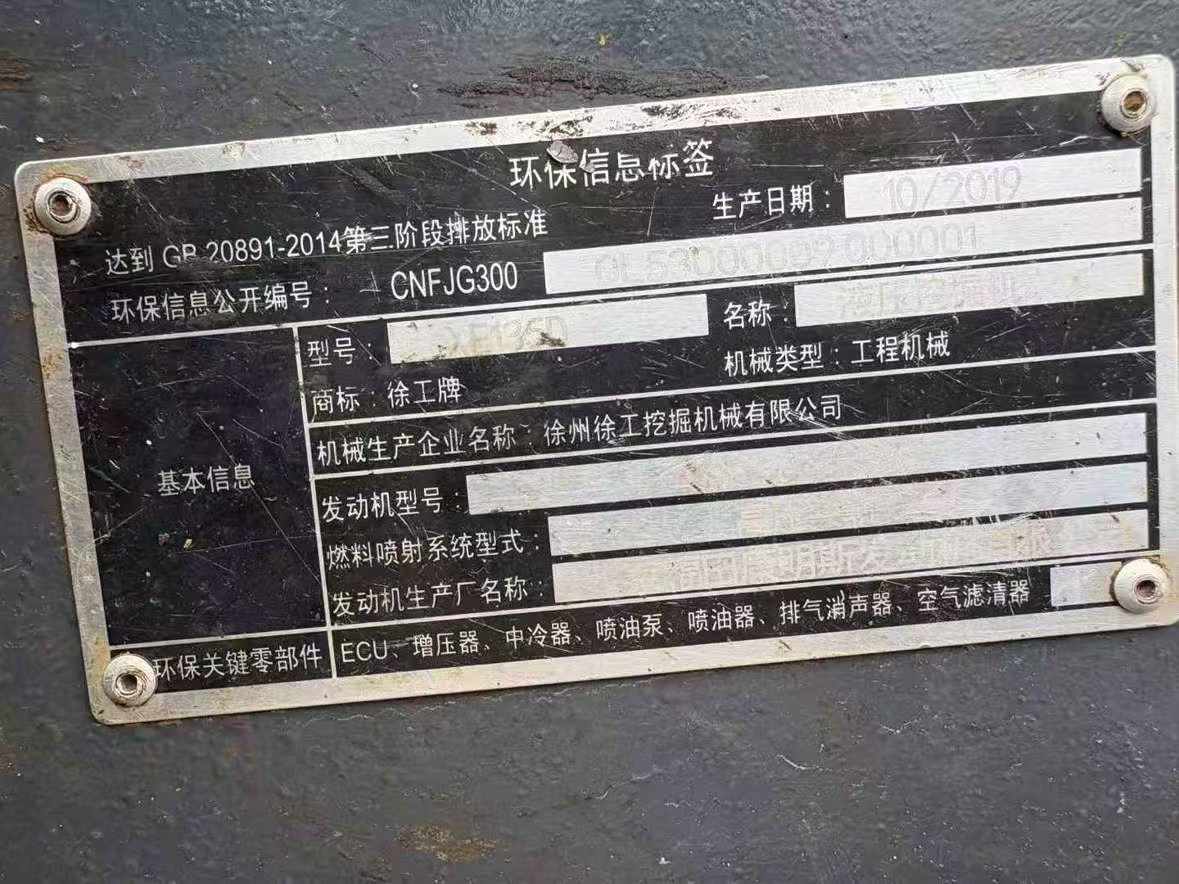 环保信息标签
生产日期：10/2019
达到 GB 20891-2014第三阶段排放标准
环保信息公开编号： CNFJG300
型号： 名称：
商标：徐工牌 机械类型：工程机械
机械生产企业名称：徐州徐工挖掘机械有限公司
基本信息
发动机型号：
燃料喷射系统型式：
发动机生产厂名称：
环保关键零部件 ECU、增压器、中冷器、喷油泵、喷油器、排气消声器、空气滤清器